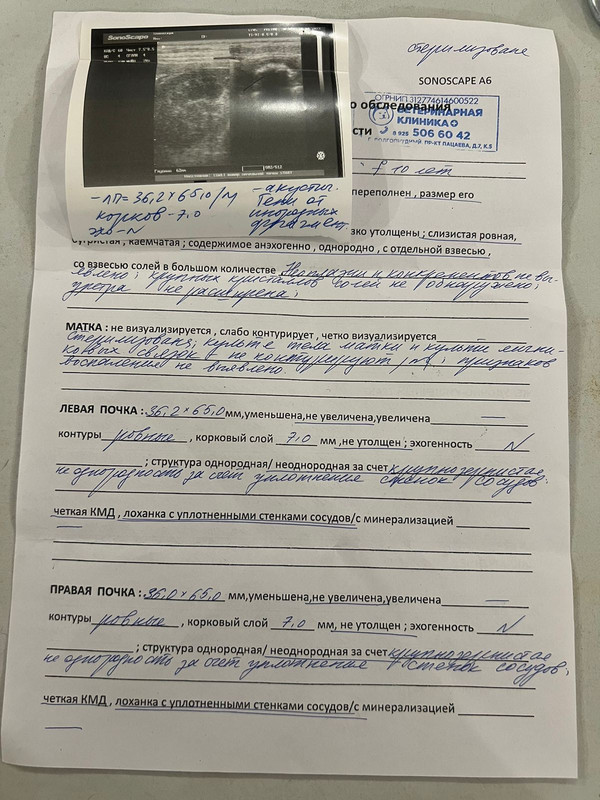 стерилизована
SONOSCAPE A6
SonoScape
о обследования
ОГРНИП 312774614600522
ВЕТЕРИНАРНАЯ
КЛИНИКА
8 925 506 60 42
Г. ДОЛГОПРУДНЫЙ, ПР-КТ ПАЦАЕВА, Д.7, К.5
сти
10 лет
переполнен , размер его
– ЛП = 36,2 × 65,0 / N
корков – 7,0
эхо – N
– акустич.
Тени от
инородных
фрагмент.
зко утолщены ; слизистая ровная,
бугристая , каемчатая ; содержимое анэхогенно , однородно , с отдельной взвесью ,
со взвесью солей в большом количестве Неоплазии и конкрементов не вы-
явлено ; крупных кристаллов солей не обнаружено ;
уретра не расширена ;
МАТКА : не визуализируется , слабо контурирует , четко визуализируется
стерилизована ; культе тела матки и культи яични-
ковых связок – не контурируют ; признаков
воспаления не выявлено.
ЛЕВАЯ ПОЧКА : 36,2 × 65,0 мм,уменьшена,не увеличена,увеличена —
контуры ровные , корковый слой 7,0 мм ,не утолщен ; эхогенность N
; структура однородная/ неоднородная за счет крупнозернистая
не однородность за счет уплотнения стенок сосудов.
четкая КМД , лоханка с уплотненными стенками сосудов/с минерализацией
—
ПРАВАЯ ПОЧКА : 36,0 × 65,0 мм,уменьшена,не увеличена,увеличена —
контуры ровные , корковый слой 7,0 мм, не утолщен ; эхогенность N
; структура однородная/ неоднородная за счет крупнозернистая
не однородность за счет уплотнения стенок сосудов,
четкая КМД , лоханка с уплотненными стенками сосудов/с минерализацией
—